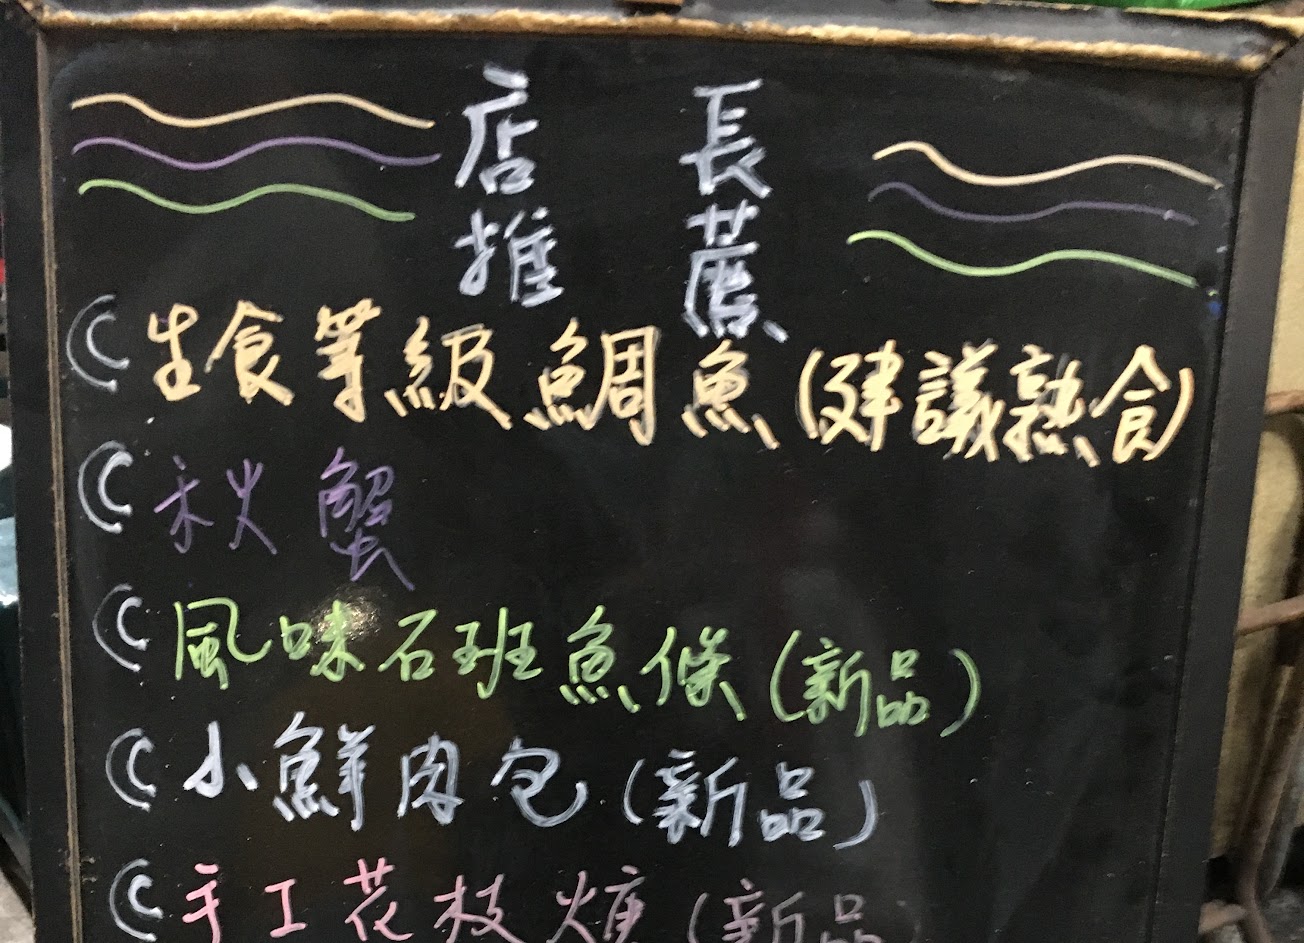 店長
推薦
生食等級鯛魚(建議熟食)
秋蟹
風味石斑魚條(新品)
小鮮肉包(新品)
手工花枝燻(新品